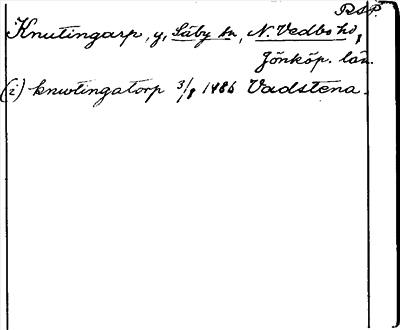 RSP.
Knutingarp, y, Säby sn, N. Vedbo hd,
Jönköp. län.
(i) knwtingatorp 3/8 1486 Vadstena.